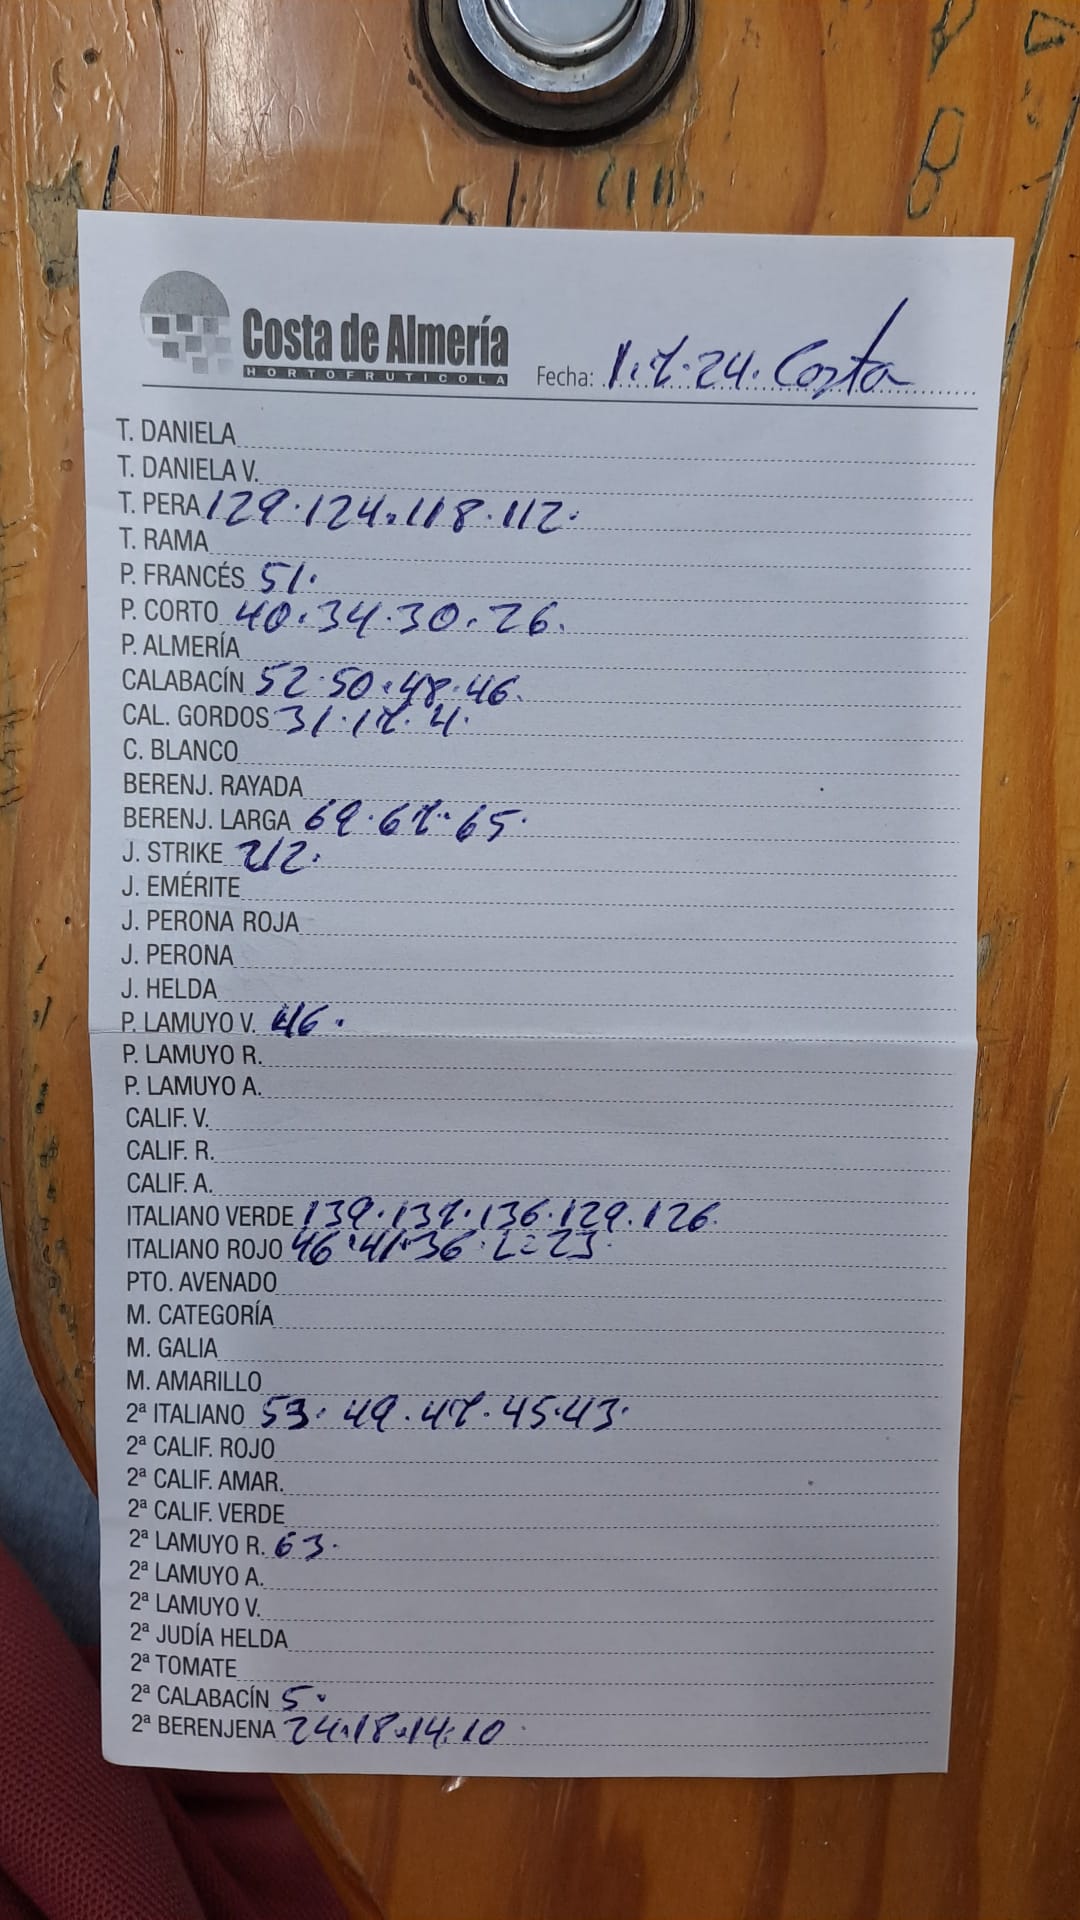 Costa de Almería
HORTOFRUTICOLA
Fecha: 1.7.24. Costa
T. DANIELA
T. DANIELA V.
T. PERA 129.124.118.112.
T. RAMA
P. FRANCÉS 51.
P. CORTO 40.34.30.26.
P. ALMERÍA
CALABACÍN 52.50.48.46.
CAL. GORDOS 31.17.4.
C. BLANCO
BERENJ. RAYADA
BERENJ. LARGA 69.67.65.
J. STRIKE 212.
J. EMÉRITE
J. PERONA ROJA
J. PERONA
J. HELDA
P. LAMUYO V. 46.
P. LAMUYO R.
P. LAMUYO A.
CALIF. V.
CALIF. R.
CALIF. A.
ITALIANO VERDE 139.137.136.129.126.
ITALIANO ROJO 46.41.36. 23.
PTO. AVENADO
M. CATEGORÍA
M. GALIA
M. AMARILLO
2ª ITALIANO 53. 49.47.45.43.
2ª CALIF. ROJO
2ª CALIF. AMAR.
2ª CALIF. VERDE
2ª LAMUYO R. 63.
2ª LAMUYO A.
2ª LAMUYO V.
2ª JUDÍA HELDA
2ª TOMATE
2ª CALABACÍN 5.
2ª BERENJENA 24.18.14.10